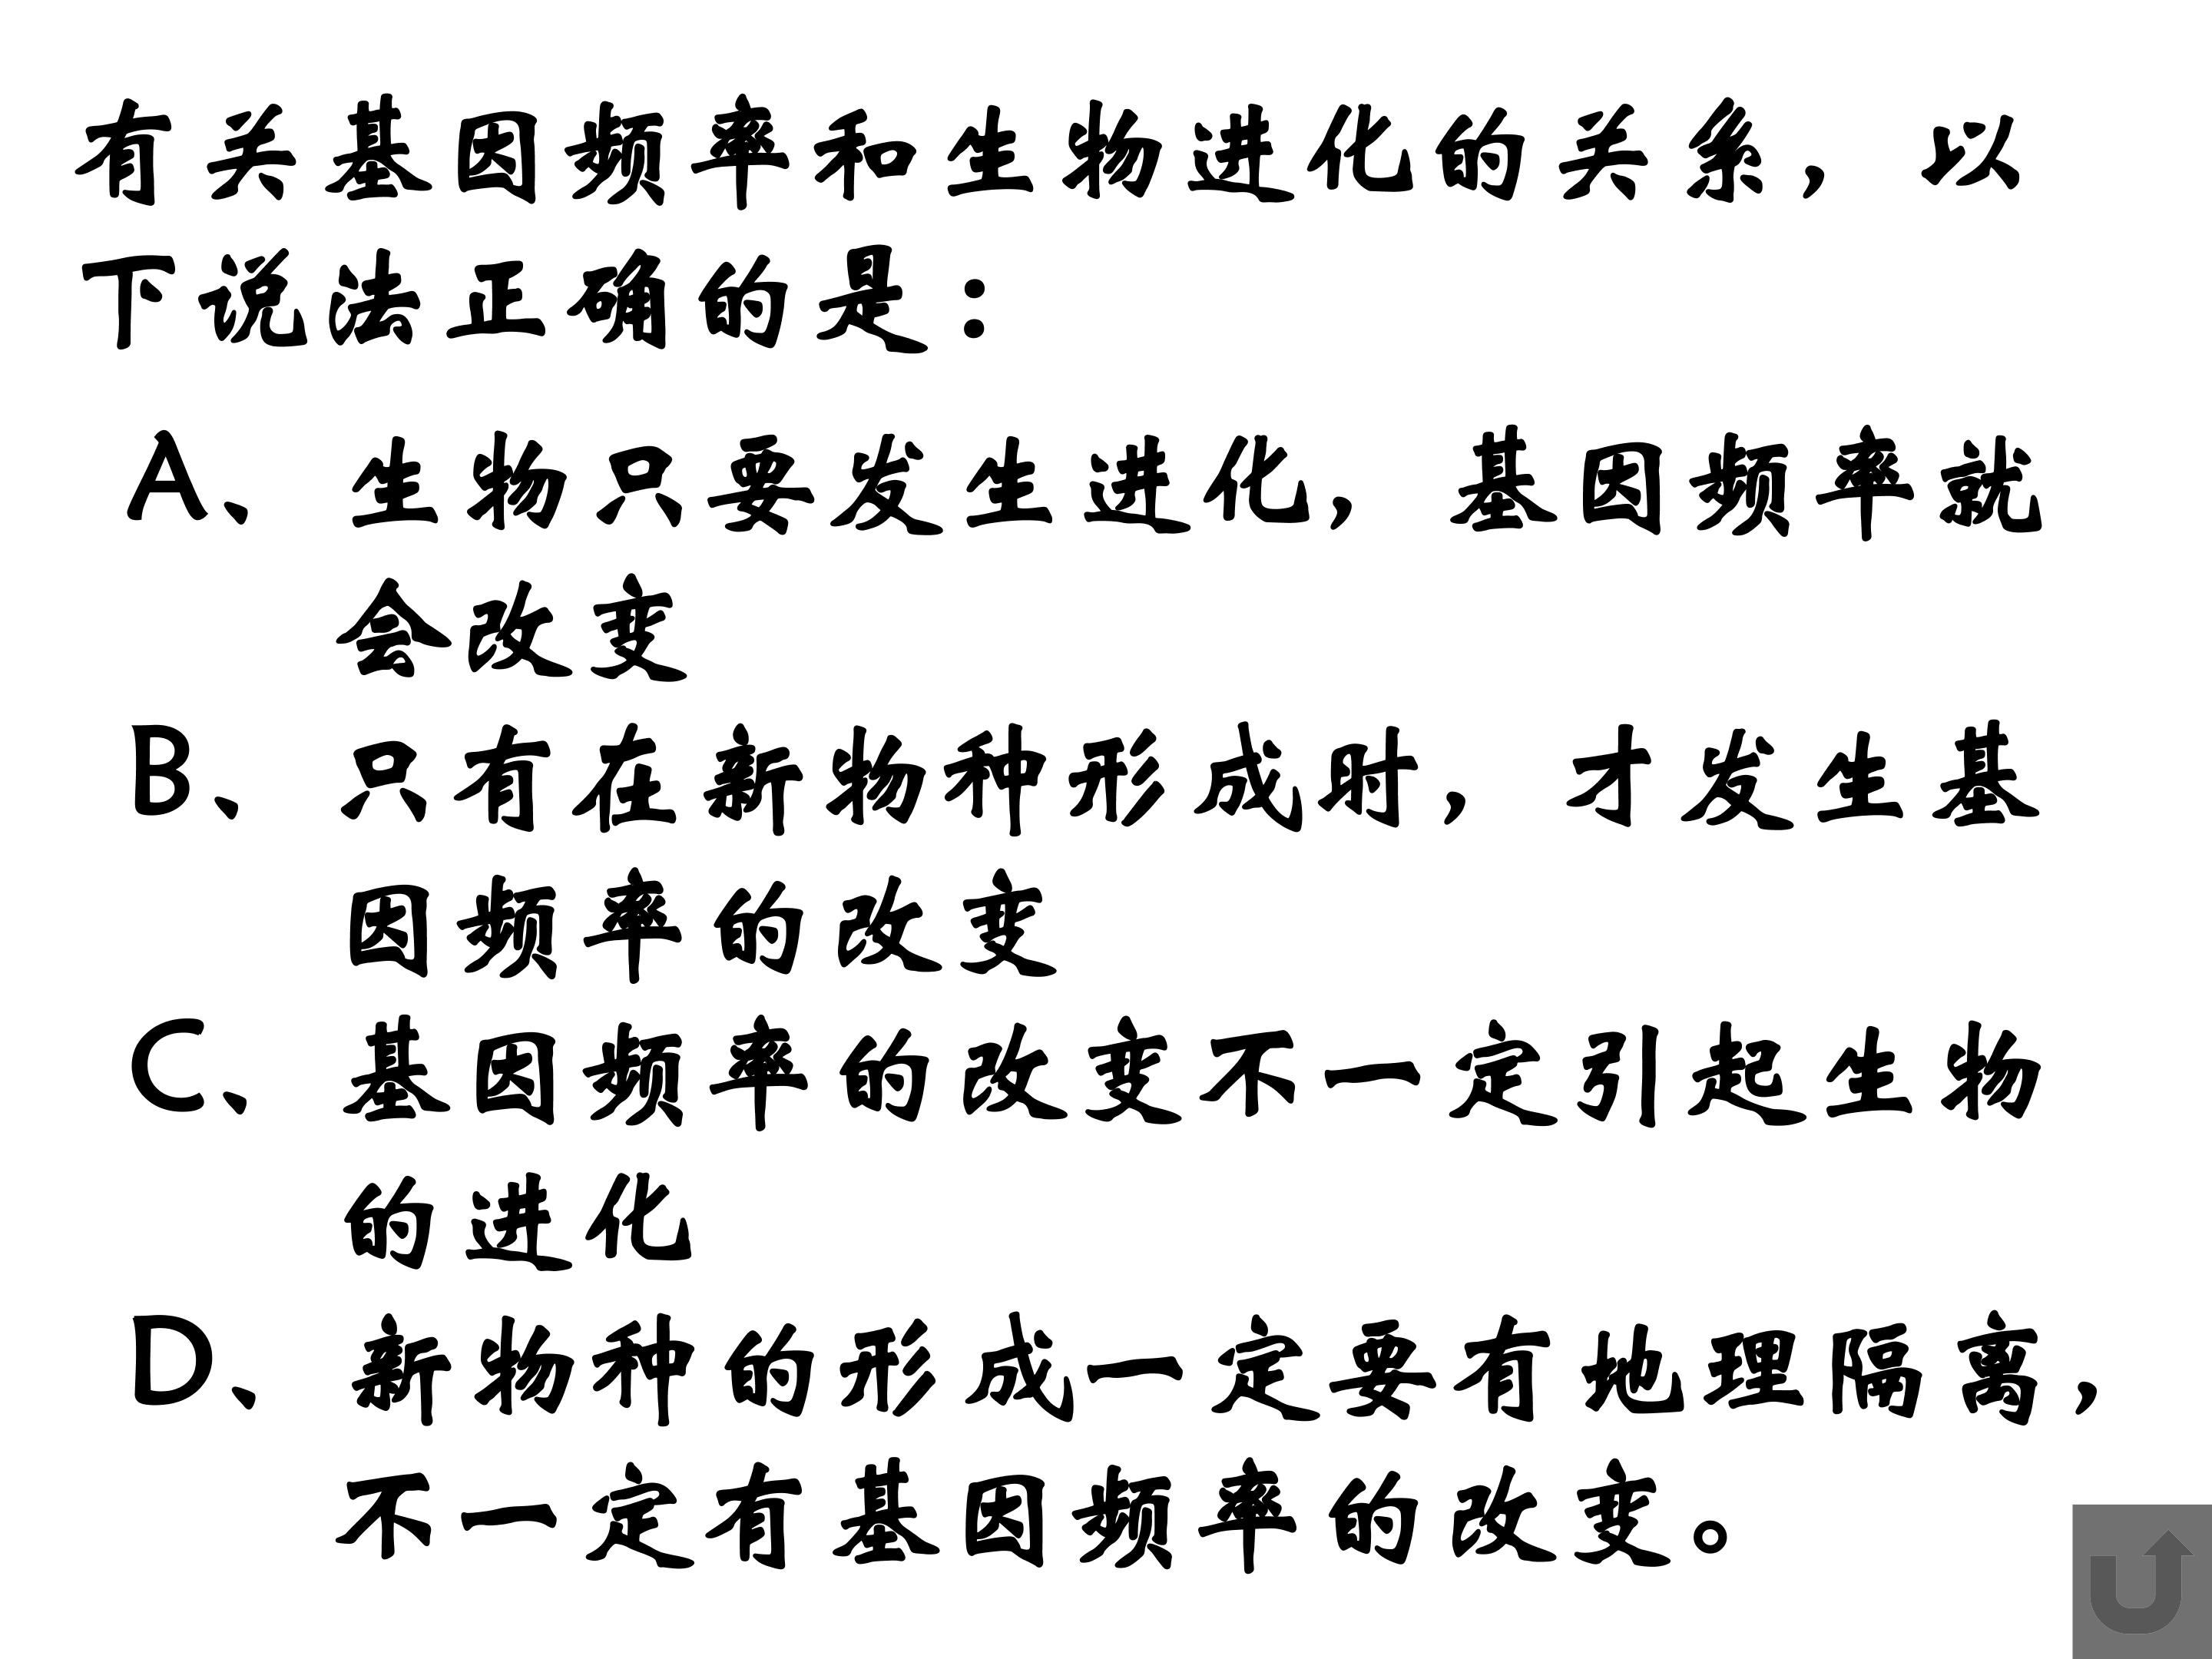 有关基因频率和生物进化的关系，以
下说法正确的是：
A、生物只要发生进化，基因频率就
会改变
B、只有在新物种形成时，才发生基
因频率的改变
C、基因频率的改变不一定引起生物
的进化
D、新物种的形成一定要有地理隔离，
不一定有基因频率的改变。